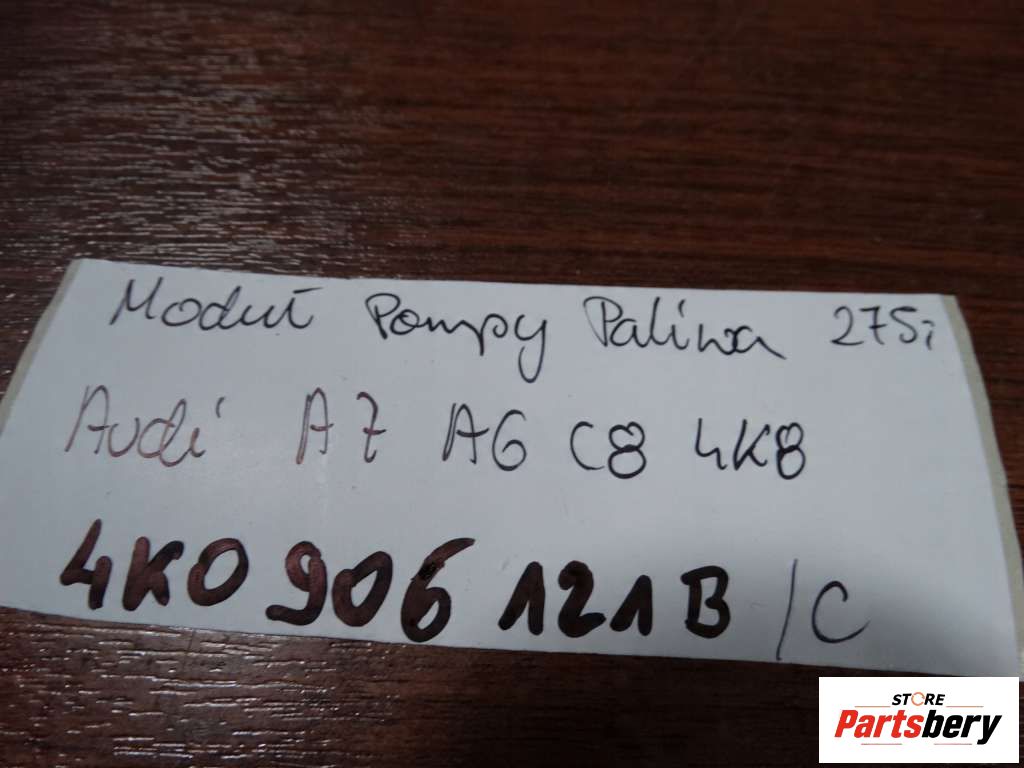 Moduł Pompy Paliwa 275i
Audi A7 A6 C8 4K8
4K0 906 121 B /C
STORE
Partsbery